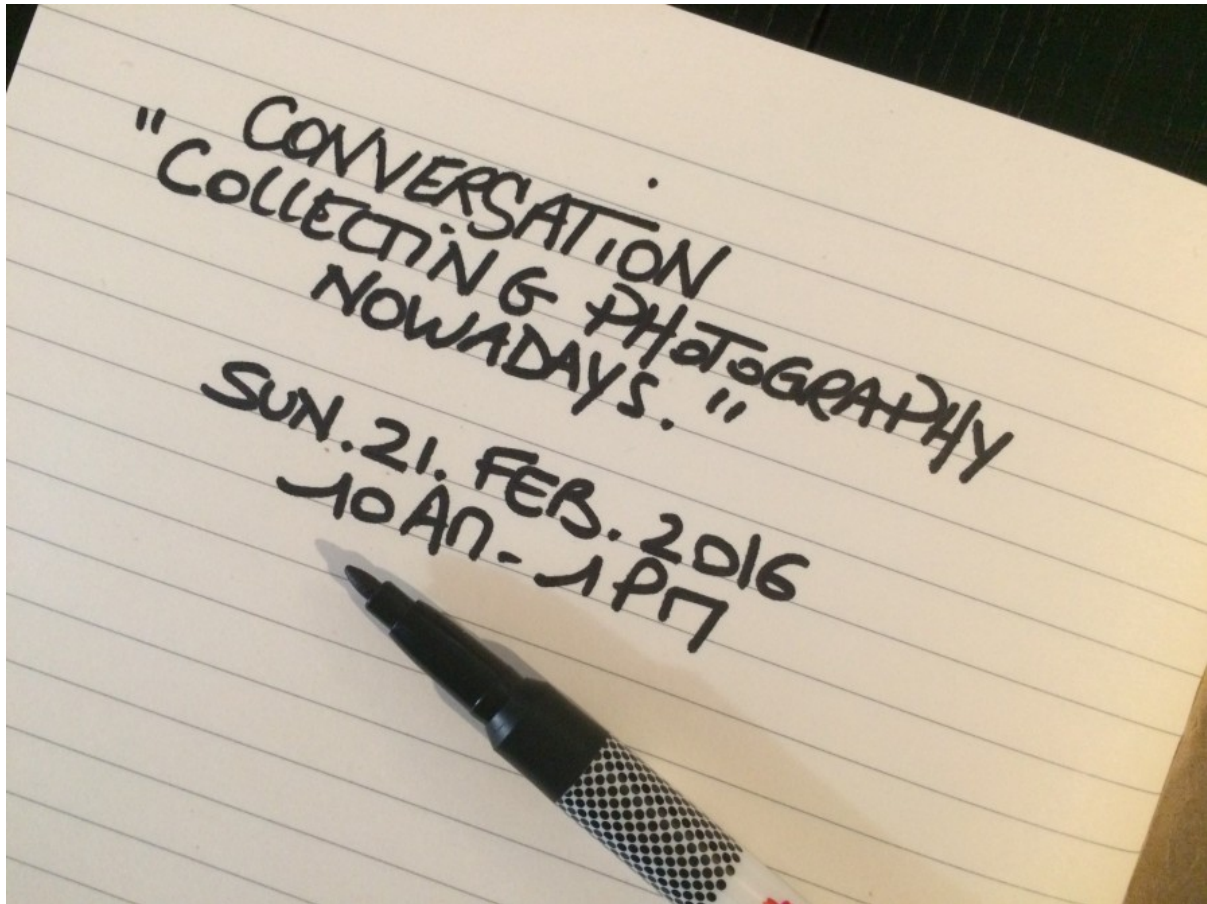 CONVERSATION
"COLLECTING PHOTOGRAPHY
NOWADAYS."
SUN. 21. FEB. 2016
10 AM - 1 PM